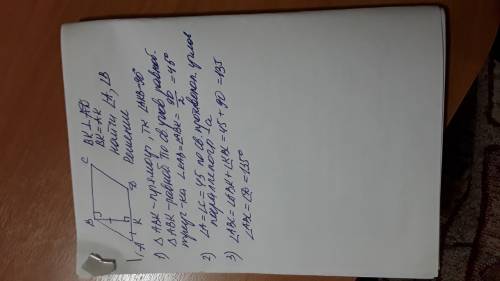 B C
A K D
BK ⊥ AD
BK = AK
Найти ∠A, ∠B
Решение
1) △ABK - прямоуг, тк ∠AKB = 90°
△ABK - равноб. По св. углов равноб.
треуг-ка ∠KAB = ∠ABK = 90/2 = 45°
2) ∠A = ∠C = 45 по св. противопол. углов
параллелогр-ма
3) ∠ABC = ∠ABK + ∠KBC = 45 + 90 = 135
∠ABC = ∠D = 135°